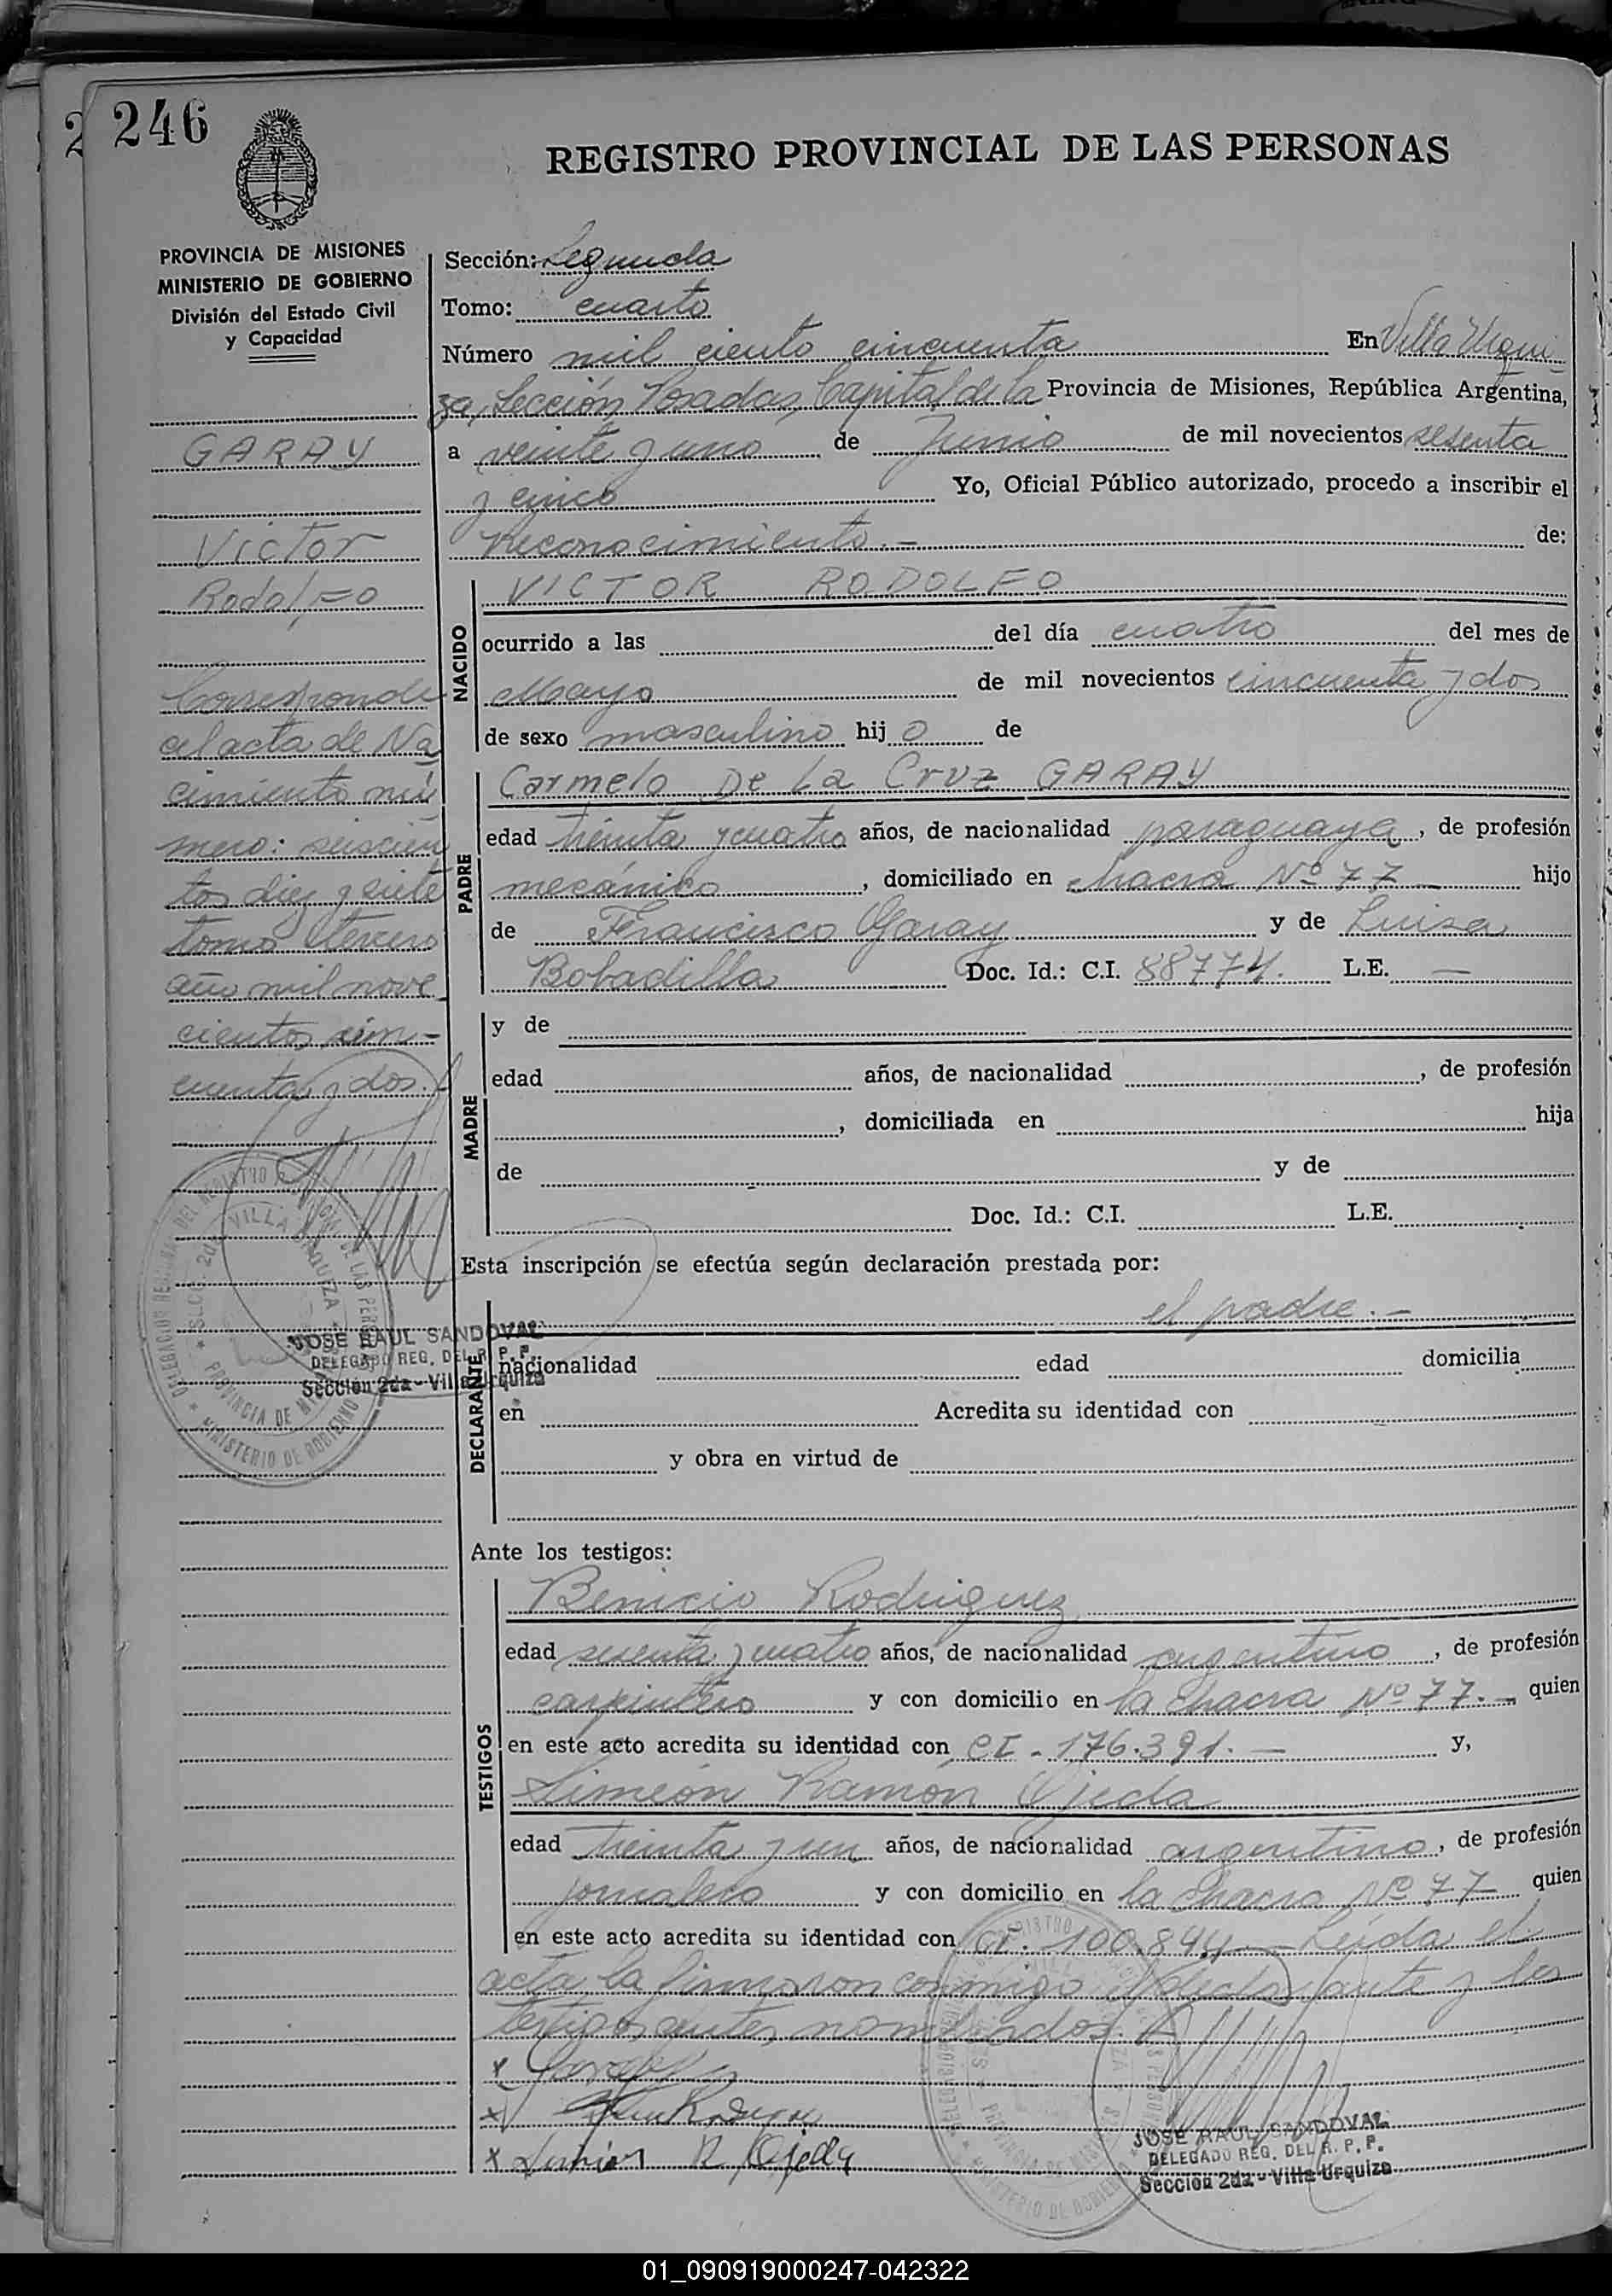 246
REGISTRO PROVINCIAL DE LAS PERSONAS
PROVINCIA DE MISIONES
MINISTERIO DE GOBIERNO
División del Estado Civil
y Capacidad
GARAY
Victor
Rodolfo
Corresponde
al acta de Na
cimiento nú
mero: seiscien
tos diez y siete
tomo tercero
año mil nove
cientos cin-
cuenta y dos.
JOSE RAUL SANDOVAL
DELEGADO REG. DEL R. P. P.
Sección 2da - Villa Urquiza
Sección: Segunda
Tomo: cuarto
Número mil ciento cincuenta En Villa Urqui-
za, Sección Posadas, Capital de la Provincia de Misiones, República Argentina,
a veinte y uno de Junio de mil novecientos sesenta
y cinco Yo, Oficial Público autorizado, procedo a inscribir el
Reconocimiento.- de:
NACIDO
VICTOR RODOLFO
ocurrido a las del día cuatro del mes de
Mayo de mil novecientos cincuenta y dos
de sexo masculino hij o de
PADRE
Carmelo De La Cruz GARAY
edad treinta y cuatro años, de nacionalidad paraguaya, de profesión
mecánico, domiciliado en chacra Nº 77 - hijo
de Francisco Garay y de Luisa
Bobadilla Doc. Id.: C.I. 88774. L.E. —
MADRE
y de
edad años, de nacionalidad , de profesión
, domiciliada en hija
de y de
Doc. Id.: C.I. L.E.
Esta inscripción se efectúa según declaración prestada por:
DECLARANTE
el padre.-
nacionalidad edad domicilia
en Acredita su identidad con
y obra en virtud de
Ante los testigos:
TESTIGOS
Benicio Rodriguez
edad sesenta y cuatro años, de nacionalidad argentino, de profesión
carpintero y con domicilio en la chacra Nº 77.- quien
en este acto acredita su identidad con CI - 176.391.- y,
Simeón Ramón Ojeda
edad treinta y un años, de nacionalidad argentino, de profesión
jornalero y con domicilio en la chacra Nº 77 quien
en este acto acredita su identidad con CI. 100.844 - Leída el
acta la firmaron conmigo el declarante y los
testigos antes nombrados.
x
x
x R. Ojeda
JOSE RAUL SANDOVAL
DELEGADO REG. DEL R. P. P.
Sección 2da - Villa Urquiza
01_090919000247-042322